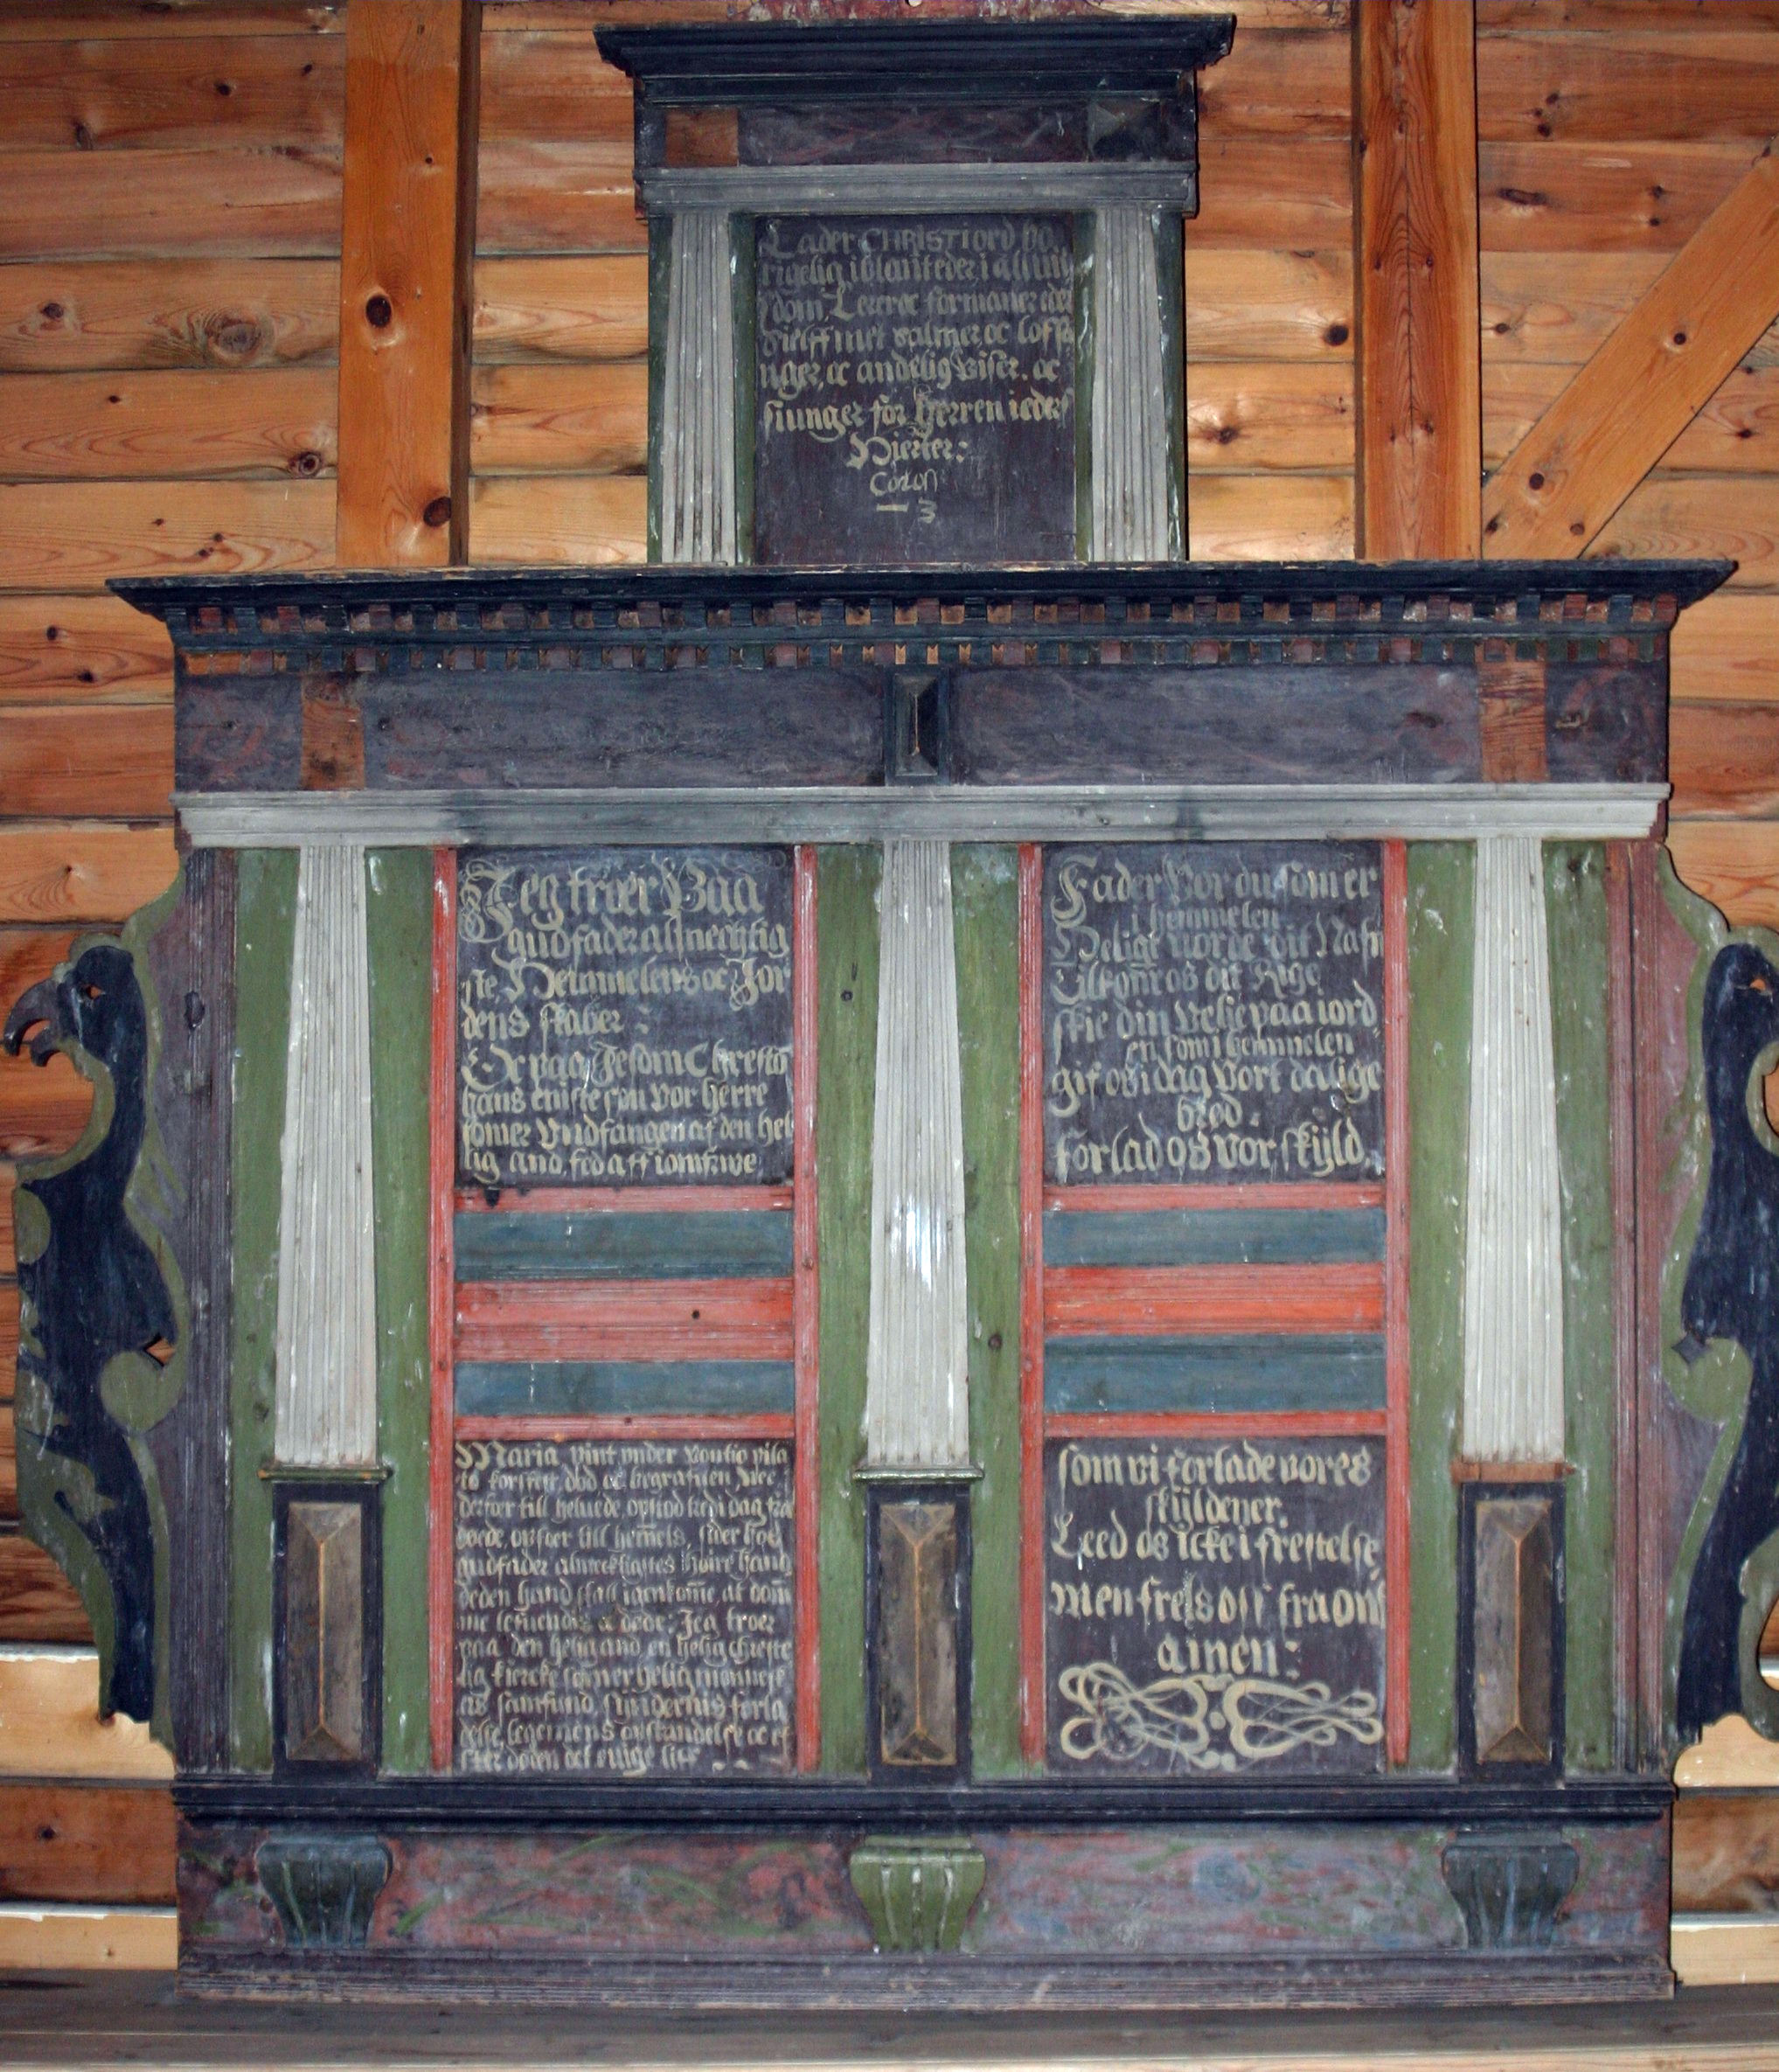 Lader CHRISTI ord bo
rigelig iblant eder i all uiis
dom, Lerer oc formaner eder
sielff met salmer oc loffsa
nger, oc andelig viser, oc
siunger for Herren i eders
Hierter:
Colos
3
Jeg troer Paa
gud fader almechtig
ste, Hemmelens oc Jor
dens skaber:
Oc paa Jesom Chrestō
hans eniste søn vor herre
somer vndfangen af den hel
lig and, fød aff iomfrwe
Maria, pint vnder Pontio pila
to korsfest, død oc begrafuen, Nee
derfoer till heluede, opstod tredi dag fra
døede, opfoer till hem̄els, sider hos
gud fader almechtigstes høire haand
deden hand skall igenkom̄e, at døm̄
me lefuendis oc døde: Jeg troer
paa den helig and, en helig christe
lig kiercke som er helig mennesk
ers samfund, Syndernis forla
delse, legemens opstandelse oc ef
fter døden det euige liff
Fader Vor du som er
i hemmelen
Heligt vorde dit Nafn
Tilkom̄e os dit Rige
skie din Velie paa iord
en som i hemmelen
gif os i dag Vort daglige
brød.
forlad os vor skÿld,
som vi forlade vores
skÿldener.
Leed os icke i frestelse
men frels oss fra ont
amen: